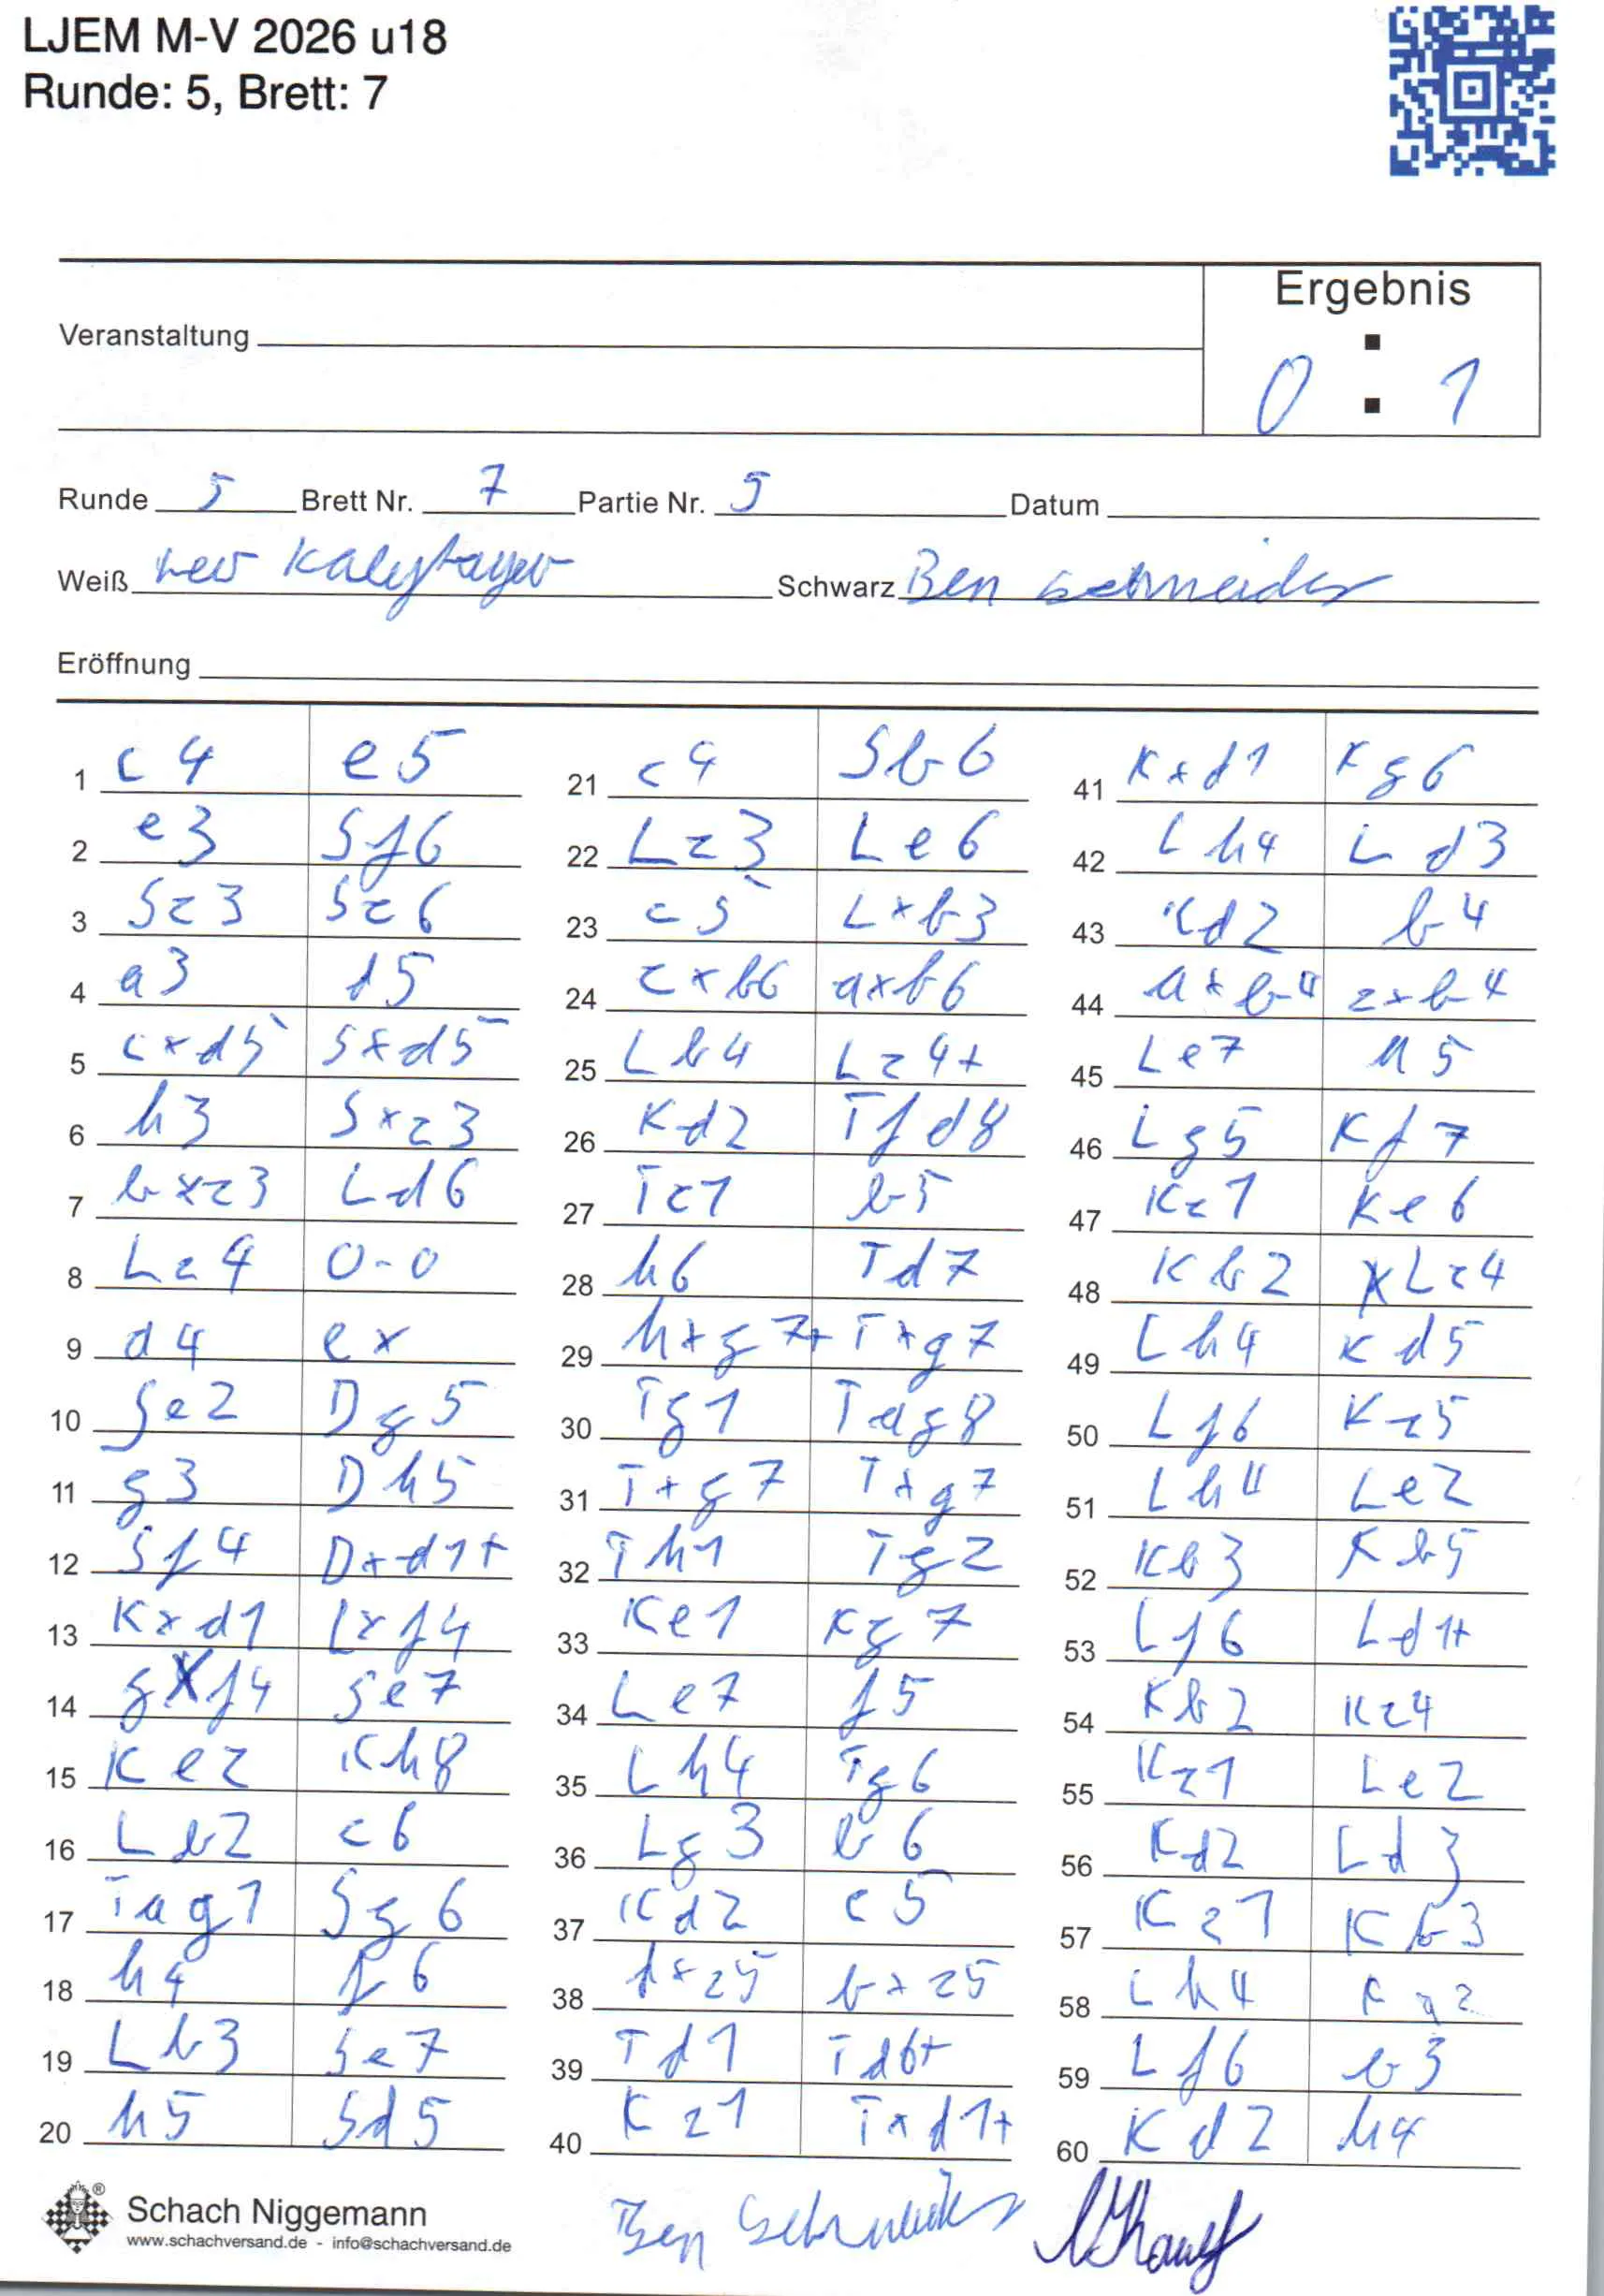 LJEM M-V 2026 u18
Runde: 5, Brett: 7
Ergebnis
Veranstaltung
0 : 1
Runde 5 Brett Nr. 7 Partie Nr. 5 Datum
Weiß Schwarz Ben Schneider
Eröffnung
1 c4 e5 21 c4 Sb6 41 Kxd1 Kg6
2 e3 Sf6 22 Lc3 Le6 42 Lh4 Ld3
3 Sc3 Sc6 23 c5 Lxb3 43 Kd2 b4
4 a3 d5 24 cxb6 axb6 44 axb4 cxb4
5 cxd5 Sxd5 25 Lb4 Lc4+ 45 Le7 h5
6 h3 Sxc3 26 Kd2 Tfd8 46 Lg5 Kf7
7 bxc3 Ld6 27 Tc1 b5 47 Kc1 Ke6
8 Lc4 0-0 28 h6 Td7 48 Kb2 Lc4
9 d4 ex 29 hxg7+ Txg7 49 Lh4 Kd5
10 Se2 Dg5 30 Tg1 Tag8 50 Lf6 Kc5
11 g3 Dh5 31 Txg7 Txg7 51 Lh4 Le2
12 Sf4 Dxd1+ 32 Th1 Tg2 52 Kb3 Kb5
13 Kxd1 Lxf4 33 Ke1 Kg7 53 Lf6 Ld1+
14 gxf4 Se7 34 Le7 f5 54 Kb2 Kc4
15 Ke2 Kh8 35 Lh4 Tg6 55 Kc1 Le2
16 Lb2 c6 36 Lg3 b6 56 Kd2 Ld3
17 Tag1 Sg6 37 Kd2 c5 57 Kc1 Kb3
18 h4 f6 38 dxc5 bxc5 58 Lh4 Ka2
19 Lb3 Se7 39 Td1 Td6+ 59 Lf6 b3
20 h5 Sd5 40 Kc1 Txd1+ 60 Kd2 h4
Schach Niggemann
www.schachversand.de - info@schachversand.de
Ben Schneider